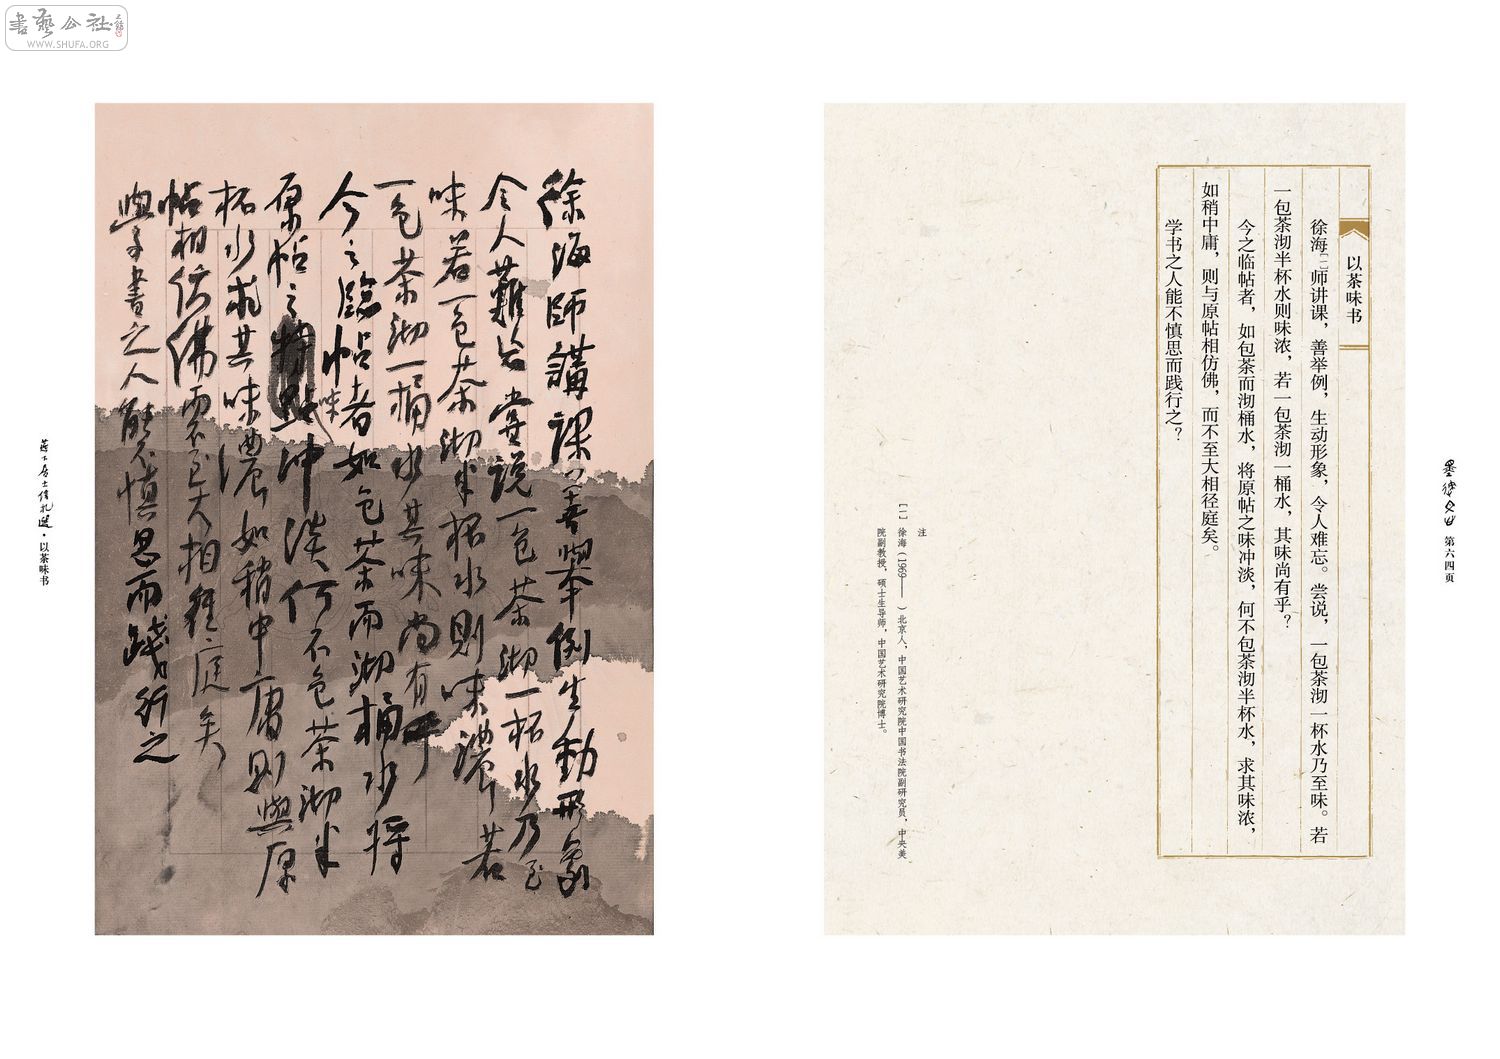 書藝公社
WWW.SHUFA.ORG
以茶味书
徐海[一]师讲课，善举例，生动形象，令人难忘。尝说，一包茶沏一杯水乃至味。若
一包茶沏半杯水则味浓，若一包茶沏一桶水，其味尚有乎？
今之临帖者，如包茶而沏桶水，将原帖之味冲淡，何不包茶沏半杯水，求其味浓，
如稍中庸，则与原帖相仿佛，而不至大相径庭矣。
学书之人能不慎思而践行之？
注
[一] 徐海（1969—— ）北京人，中国艺术研究院中国书法院副研究员，中央美
院副教授，硕士生导师，中国艺术研究院博士。
第六四页
徐海師講課善舉例生動形象
令人難忘嘗説一包茶沏一杯水乃至
味若一包茶沏半杯水則味濃若
一包茶沏一桶水其味尚有乎
今之臨帖者如包茶而沏桶水將
原帖之味冲淡何不包茶沏半
杯水求其味濃如稍中庸則與原
帖相仿佛而不至大相徑庭矣
學書之人能不慎思而踐行之
·以茶味书